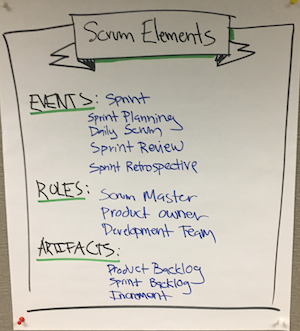 Scrum Elements
EVENTS: Sprint
Sprint Planning
Daily Scrum
Sprint Review
Sprint Retrospective
ROLES: Scrum Master
Product owner
Development Team
ARTIFACTS:
Product Backlog
Sprint Backlog
Increment